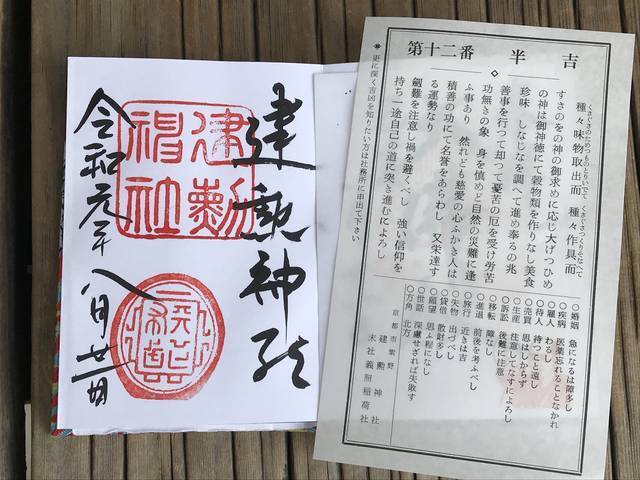 建勲神社
建勲
神社
令和元年八月
第十二番 半吉
種々味物取出而 種々作具而
すさのをの神の御求めに応じ大げつひめ
の神は御神徳にて穀物類を作りなし美食
珍味 しなじなを調へて進め奉るの兆
善事を行つて却つて憂苦の厄を受け労苦
功無きの象 身を慎めど自然の災難に逢
ふ事あり 然れども慈愛の心ふかさ人は
積善の功にて名誉をあらわし 又栄達す
る運勢なり
剱難を注意し禍を避くべし 強い信仰を
持ち一途自己の道に突き進むによろし
○婚姻 急になるは障多し
○疾病 医薬忘れることなかれ
○雇人 わるし
○待人 持つこと遠し
○売買 思はしからず
○生産 注意してなすによろし
○訴訟 後難に注意
○移転 障なし
○進退 前後を考ふべし
○旅行 近きは吉
○失物 出づべし
○貸借 散財多し
○願望 思ふ程になし
○世話 深慮せざれば失敗す
○方角 北方
京都市紫野
建勲神社
末社義照稲荷社
※更に深く吉凶を知りたい方は社務所に申出て下さい